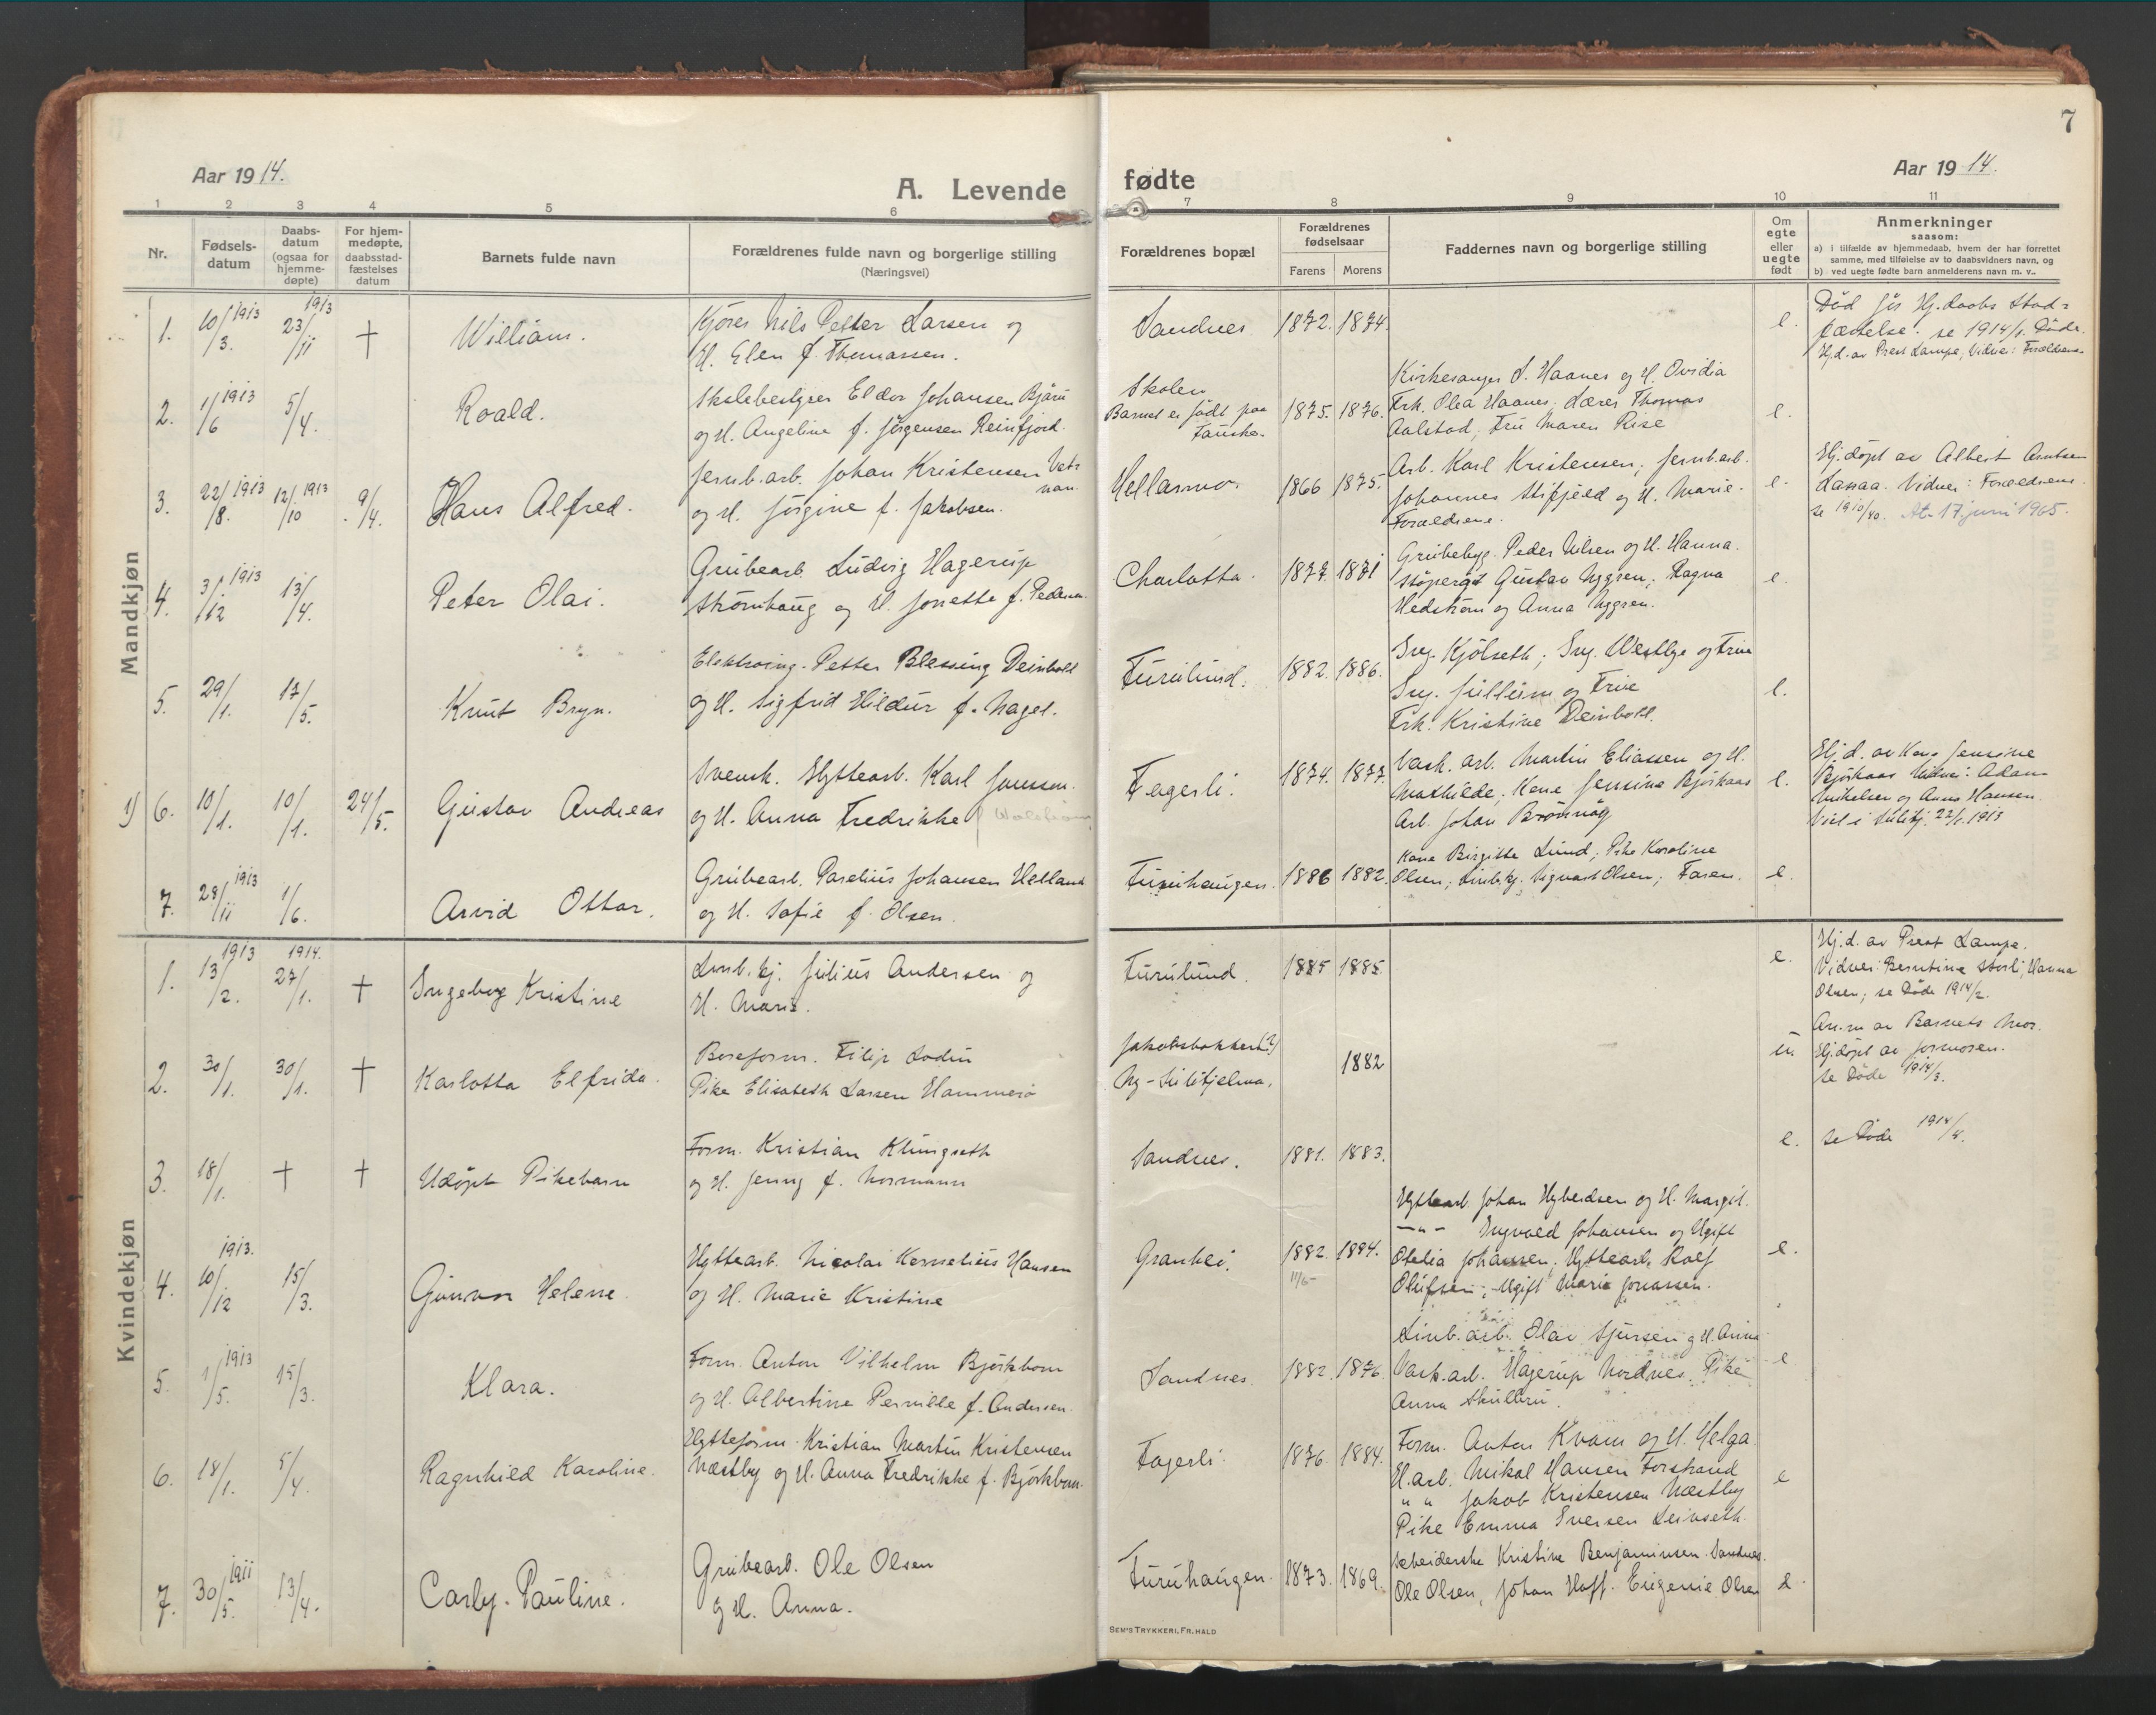 7
Aar 1914.
A. Levende fødte
Aar 1914.
1 2 3 4 5 6 7 8 9 10 11
Nr.
Fødsels-
datum
Daabs-
datum
(ogsaa for
hjemme-
døpte)
For hjem-
medøpte,
daabsstad-
fæstelses
datum
Barnets fulde navn
Forældrenes fulde navn og borgerlige stilling
(Næringsvei)
Forældrenes bopæl
Forældrenes
fødselsaar
Farens Morens
Faddernes navn og borgerlige stilling
Om
egte
eller
uegte
født
Anmerkninger
saasom:
a) i tilfælde av hjemmedaab, hvem der har forrettet
samme, med tilføielse av to daabsvidners navn, og
b) ved uegte fødte barn anmelderens navn m. v..
Mandkjøn
1. 10/3. 1913 23/11 1913 † William.
Kjører Nils Petter Larsen og
H. Elen f. Thomassen.
Sandnes 1872. 1874. e.
Død før Hj.daabs Stad-
fæstelse. se 1914/1. Døde.
Hj.d. av Prest Lampe, Vidner: Forældrene
2. 1/6 1913 5/4. Roald.
Skolebestyrer Eldor Johansen Bjåru
og H. Angeline f. Jørgensen Reinfjord.
Skolen
Barnet er født paa
Fauske.
1875. 1876.
Kirkesanger S. Haanes og H. Ovidia
Frk. Olea Haanes. Lærer Thomas
Aalstad, Fru Maren Rise
e.
3. 22/8. 1913 12/10 1913 9/4. Hans Alfred.
Jernb.arb. Johan Kristensen Vats
og H. Jørgine f. Jakobsen.
Hellarmo. 1866 1875.
Arb. Karl Kristensen; Jernb.arb.
Johannes Stifjeld og H. Marie.
Forældrene.
e.
Hj.døpt av Albert Arntsen
Lassaa. Vidner: Forældrene
se 1910/40. At. 17 juni 1965.
4. 3/12 1913 13/4. Peter Olai.
Grubearb. Ludvig Hagerup
Strømhaug og H. Jonette f. Pedersen.
Charlotta. 1877. 1871
Grubebyg. Peder Nilsen og H. Hanna.
Støperarb. Gustav Nygren; Ragna
Hedstrøm og Anna Nygren.
e.
5. 29/1. 17/5. Knut Bryn.
Elektroing. Petter Blessing Deinboll
og H. Sigfrid Hildur f. Nagel.
Furulund. 1882. 1886.
Ing. Kjølseth; Ing. Westbye og Frue
Ing. Jullum og Frue
Frk. Kristine Deinboll.
e.
1) 6. 10/1. 10/1. 24/5. Gustav Andreas
Svensk. Hyttearb. Karl Jonsson
og H. Anna Fredrikke
Fagerli. 1874. 1877.
Vask. arb. Martin Eliassen og H.
Mathilde; Kone Jensine Bjørkaas
Arb. Johan Brønnøg
e.
Hj.d. av Kone Jensine
Bjørkaas Vidner: Adam
Mikelsen og Anna Hansen
Viet i Sulitj. 22/6. 1913
7. 28/11 1913 1/6. Arvid Ottar.
Grubearb. Parelius Johansen Helland
og H. Sofie f. Olsen.
Furuhaugen. 1886 1882.
Kone Birgitte Lund; Pike Karoline
Olsen; Linb.kj. Sigvart Olsen; Faren.
e.
Kvindekjøn
1. 13/2. 1913 27/1. 1914. † Ingeborg Kristine
Linb. kj. Julius Andersen og
H. Marie.
Furulund. 1885 1885. e.
Hj.d. av Prest Lampe.
Vidner: Berntine Storli, Hanna
Olsen; se Døde 1914/2.
2. 30/1. 30/1. † Karlotta Elfrida.
Boreform. Filip Lodin
Pike Elisabeth Larsen Hammerø
Jakobsbakken(?)
Ny-Sulitjelma.
1882 u.
An.m av Barnets Mor.
Hj.døpt av Jormoren.
se Døde 1914/3.
3. 18/1. † † Udøpt Pikebarn
Form. Kristian Klungseth
og H. Jenny f. Normann
Sandnes. 1881. 1883. e. se Døde 1914/4.
4. 10/12 1913. 15/3. Gunvor Helene
Hyttearb. Nicolai Kornelius Hansen
og H. Marie Kristine
Granhei. 1882. 11/5 1884.
Hyttearb. Johan Hyberdsen og H. Margit.
—"— Ingvald Johansen og Ugift
Otelia Johansen; Hyttearb. Rolf
Olufsen; Ugift Marie Jonassen.
e.
5. 1/5. 1913 15/3. Klara.
Form. Anton Vilhelm Bjørkbom
og H. Albertine Pernille f. Andersen.
Sandnes. 1882. 1876.
Linb. arb. Olav Sjursen og H. Anna
Vask.arb. Hagerup Nordnes Pike
Anna Skullbru.
e
6. 18/1. 5/4. Ragnhild Karoline.
Hytteform. Kristian Martin Kristensen
Næstby og H. Anna Fredrikke f. Bjørkbom.
Fagerli. 1876. 1884.
Form. Anton Kvam og H. Helga
H.arb. Mikal Hansen Forstrand
" " Jakob Kristensen Næstby
Pike Emma Iversen Leivseth.
e
7. 30/5. 1911 13/4. Carly. Pauline.
Grubearb. Ole Olsen
og H. Anna.
Furuhaugen. 1873. 1869.
Arbeiderske Kristine Benjaminsen Sandnes.
Ole Olsen, Johan Hoff. Eugenie Olsen
e.
SEM'S TRYKKERI, FR. HALD